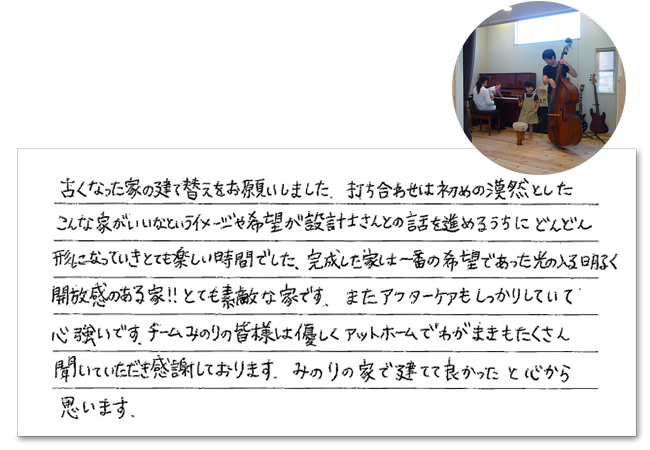 古くなった家の建て替えをお願いしました．打ち合わせは初めの漠然とした
こんな家がいいなというイメージや希望が設計士さんとの話を進めるうちに どんどん
形になっていきとても楽しい時間でした、完成した家は一番の希望であった光の入る明るく
開放感のある家!! とても素敵な家です．またアフターケアもしっかりしていて
心強いです．チームみのりの皆様は優しくアットホームでわがままもたくさん
聞いていただき感謝しております．みのりの家で建てて良かった と心から
思います．